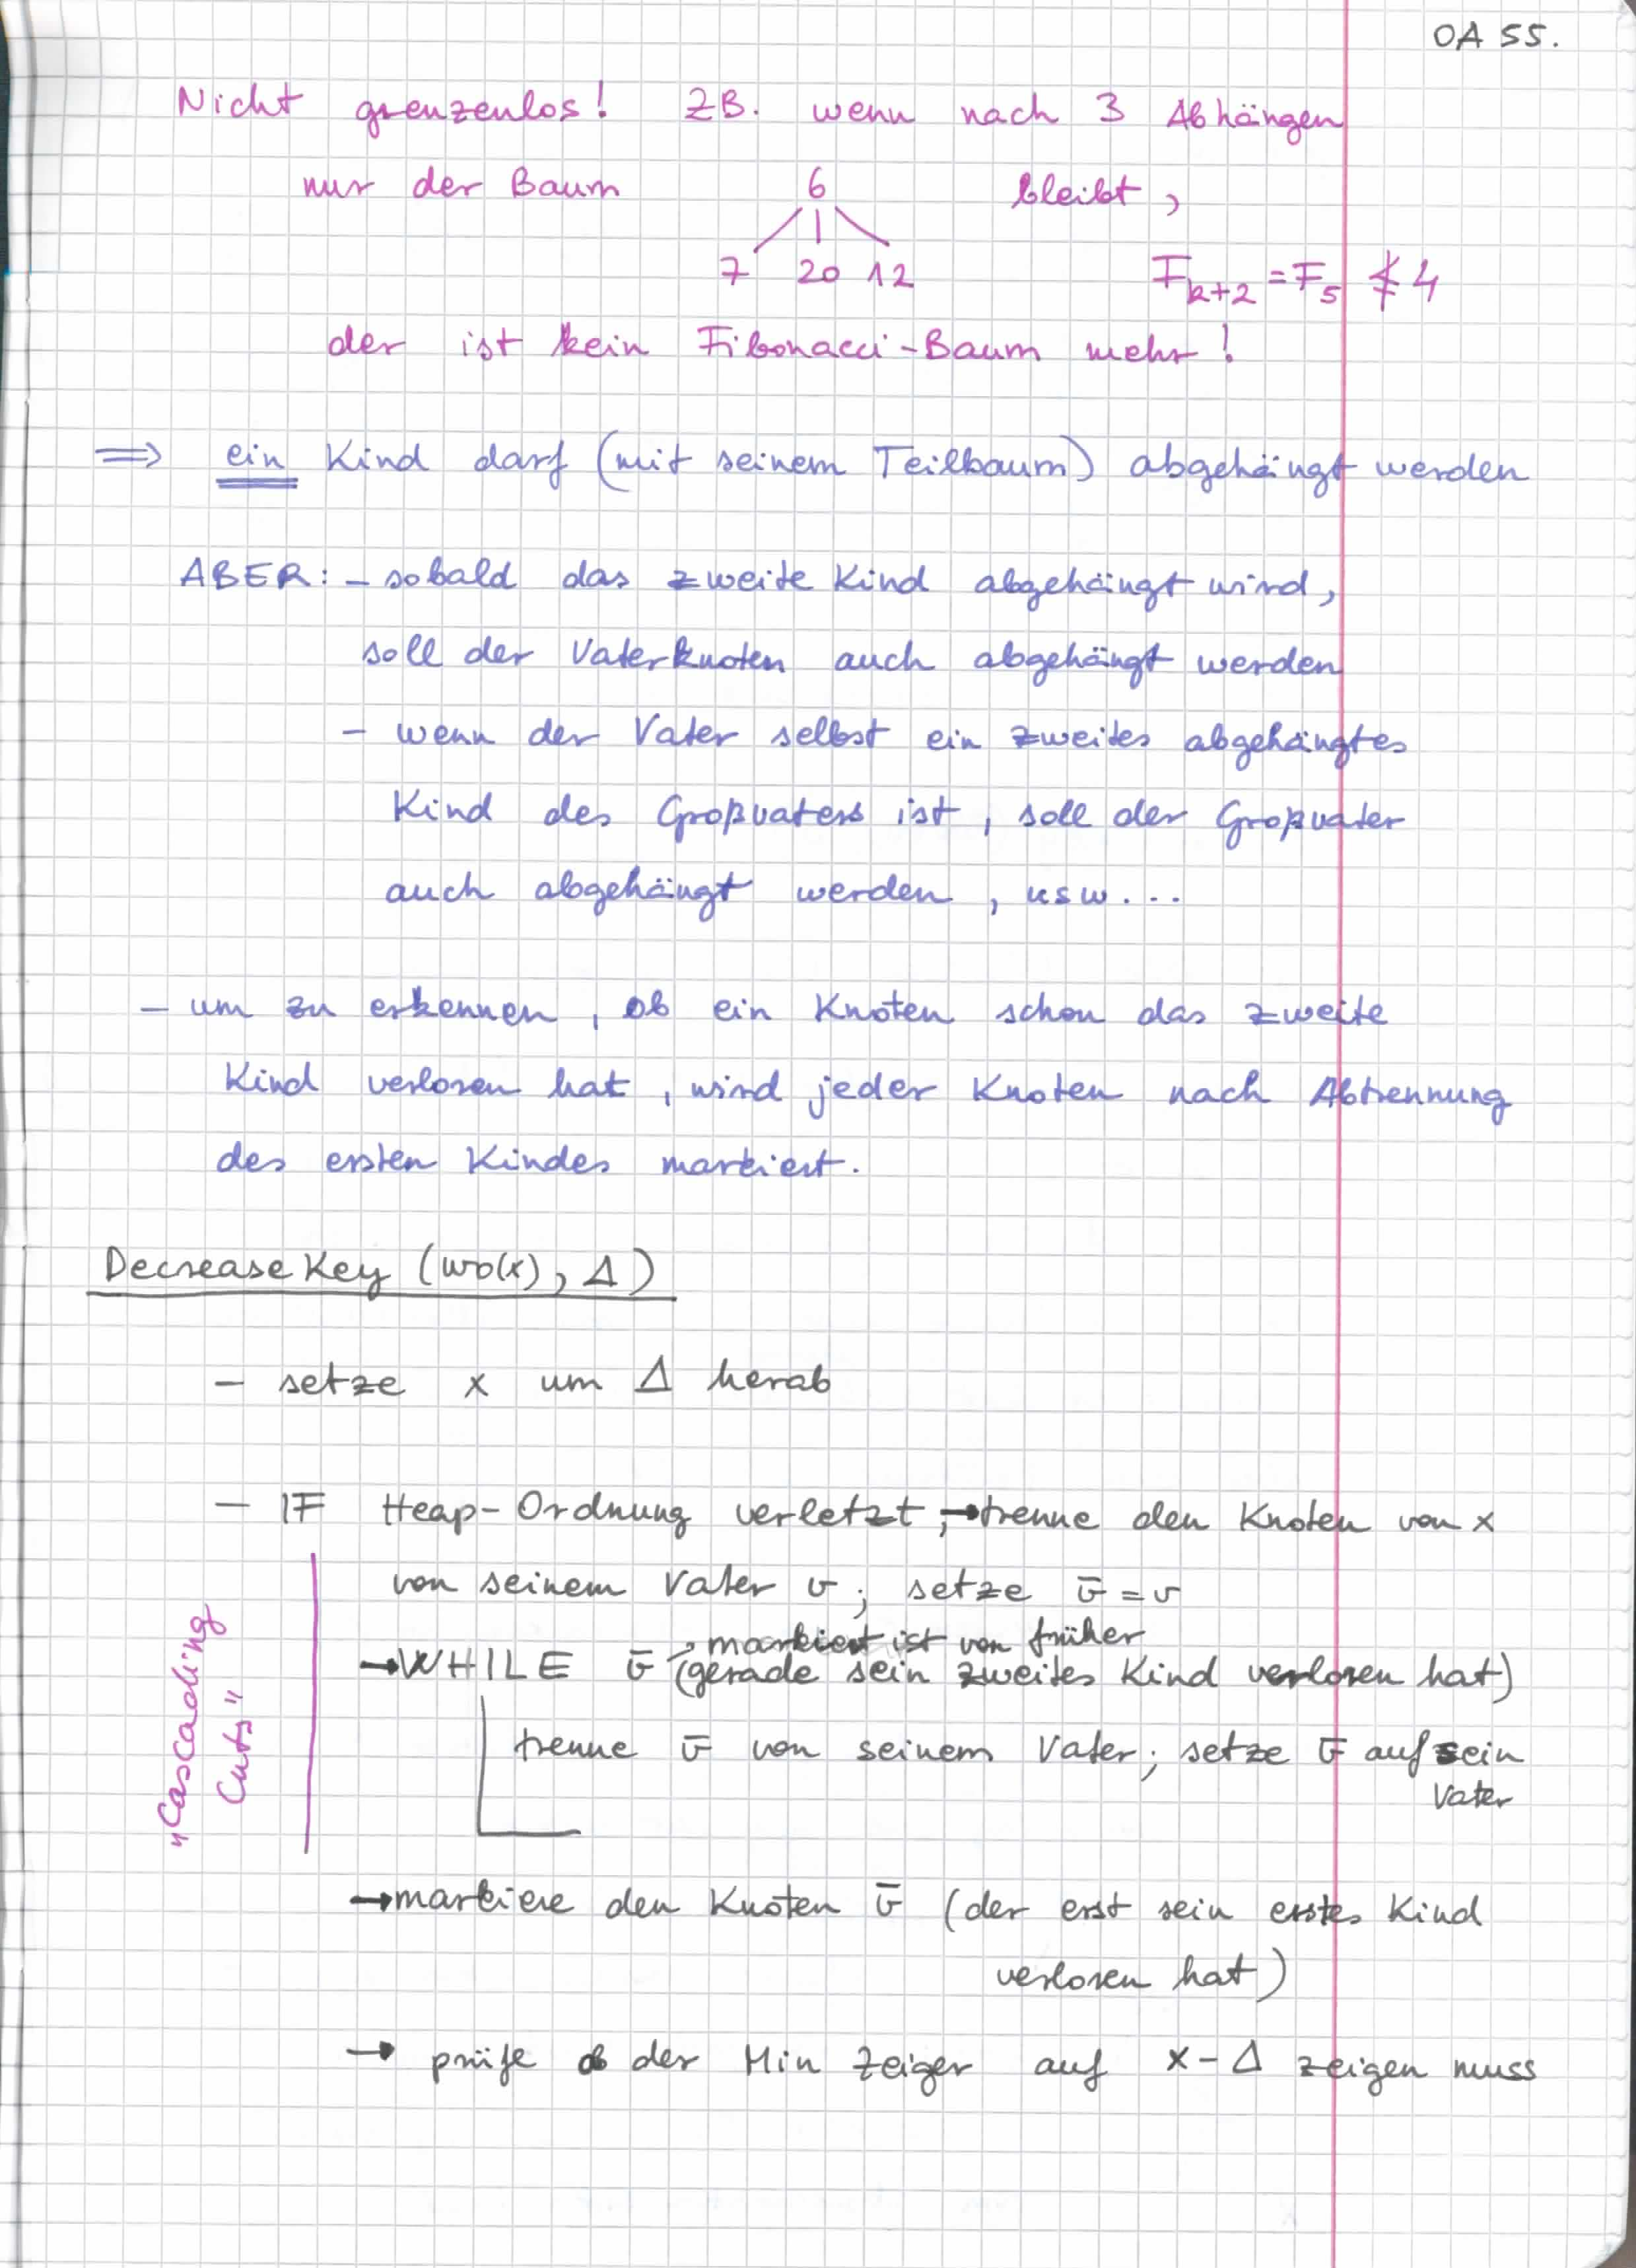 OA 55.
Nicht grenzenlos! ZB. wenn nach 3 Abhängen
nur der Baum 6 bleibt,
7 20 12 F_{k+2} = F_5 ≰ 4
der ist kein Fibonacci-Baum mehr!
⟹ ein Kind darf (mit seinem Teilbaum) abgehängt werden
ABER: - sobald das zweite Kind abgehängt wird,
soll der Vaterknoten auch abgehängt werden
- wenn der Vater selbst ein zweites abgehängtes
Kind des Großvaters ist, soll der Großvater
auch abgehängt werden, usw...
- um zu erkennen, ob ein Knoten schon das zweite
Kind verloren hat, wird jeder Knoten nach Abtrennung
des ersten Kindes markiert.
DecreaseKey (wo(x), Δ)
- setze x um Δ herab
- IF Heap-Ordnung verletzt, → trenne den Knoten von x
von seinem Vater v; setze v̄ = v
markiert ist von früher
→ WHILE v̄ (gerade sein zweites Kind verloren hat)
trenne v̄ von seinem Vater; setze v̄ auf sein
Vater
„Cascading
Cuts"
→ markiere den Knoten v̄ (der erst sein erstes Kind
verloren hat)
→ prüfe ob der Min Zeiger auf x-Δ zeigen muss